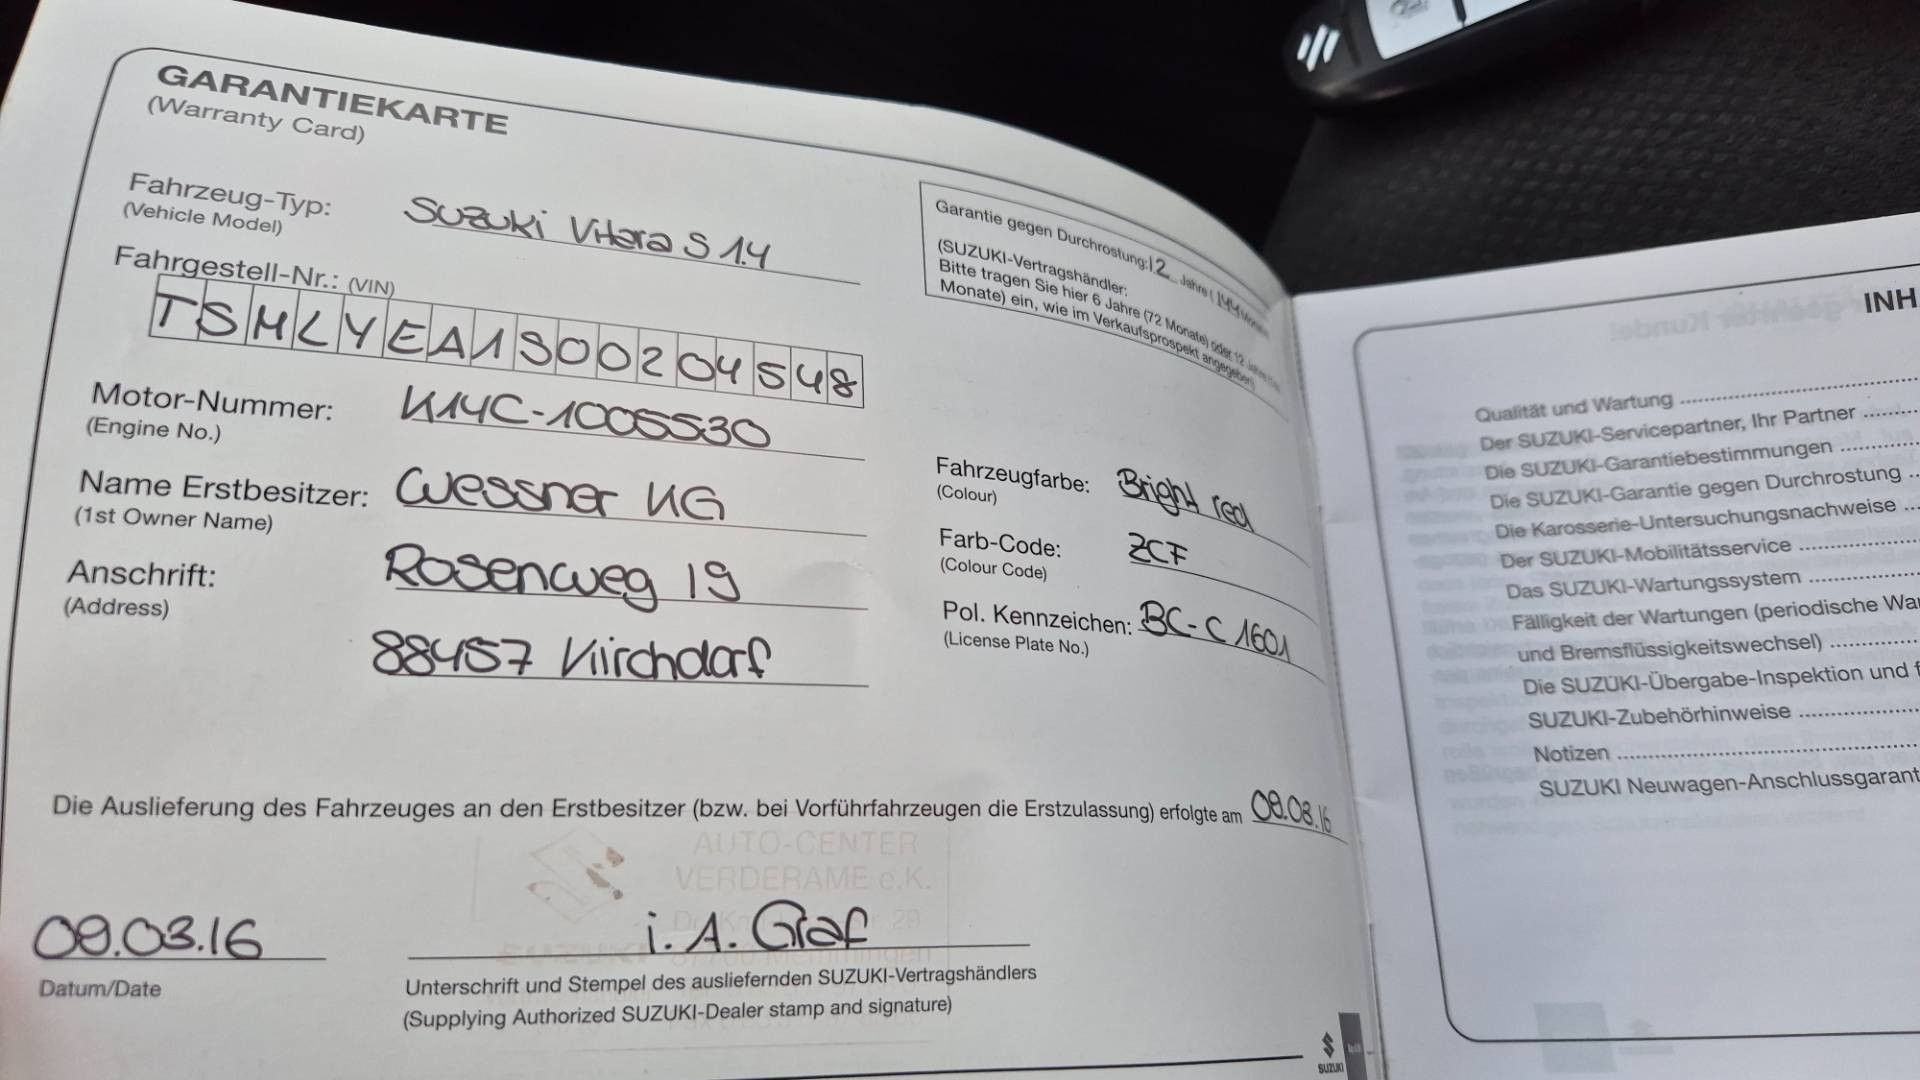 GARANTIEKARTE
(Warranty Card)
Fahrzeug-Typ: Suzuki Vitara S 1.4
(Vehicle Model)
Fahrgestell-Nr.: (VIN)
TSMLYEA1S00204548
Motor-Nummer: K14C-1005530
(Engine No.)
Name Erstbesitzer: Wessner KG
(1st Owner Name)
Anschrift: Rosenweg 19
(Address)
88457 Kirchdorf
Garantie gegen Durchrostung: 12 Jahre (144 Monate)
(SUZUKI-Vertragshändler:
Bitte tragen Sie hier 6 Jahre (72 Monate) oder 12 Jahre
Monate) ein, wie im Verkaufsprospekt angegeben)
Fahrzeugfarbe: Bright red
(Colour)
Farb-Code: ZCF
(Colour Code)
Pol. Kennzeichen: BC-C 1601
(License Plate No.)
Die Auslieferung des Fahrzeuges an den Erstbesitzer (bzw. bei Vorführfahrzeugen die Erstzulassung) erfolgte am 09.03.16
AUTO-CENTER
VERDERAME e.K.
29
87700 Memmingen
09.03.16 i. A. Graf
Datum/Date
Unterschrift und Stempel des ausliefernden SUZUKI-Vertragshändlers
(Supplying Authorized SUZUKI-Dealer stamp and signature)
SUZUKI
INH
Qualität und Wartung
Der SUZUKI-Servicepartner, Ihr Partner
Die SUZUKI-Garantiebestimmungen
Die SUZUKI-Garantie gegen Durchrostung
Die Karosserie-Untersuchungsnachweise
Der SUZUKI-Mobilitätsservice
Das SUZUKI-Wartungssystem
Fälligkeit der Wartungen (periodische Wa
und Bremsflüssigkeitswechsel)
Die SUZUKI-Übergabe-Inspektion und f
SUZUKI-Zubehörhinweise
Notizen
SUZUKI Neuwagen-Anschlussgarant